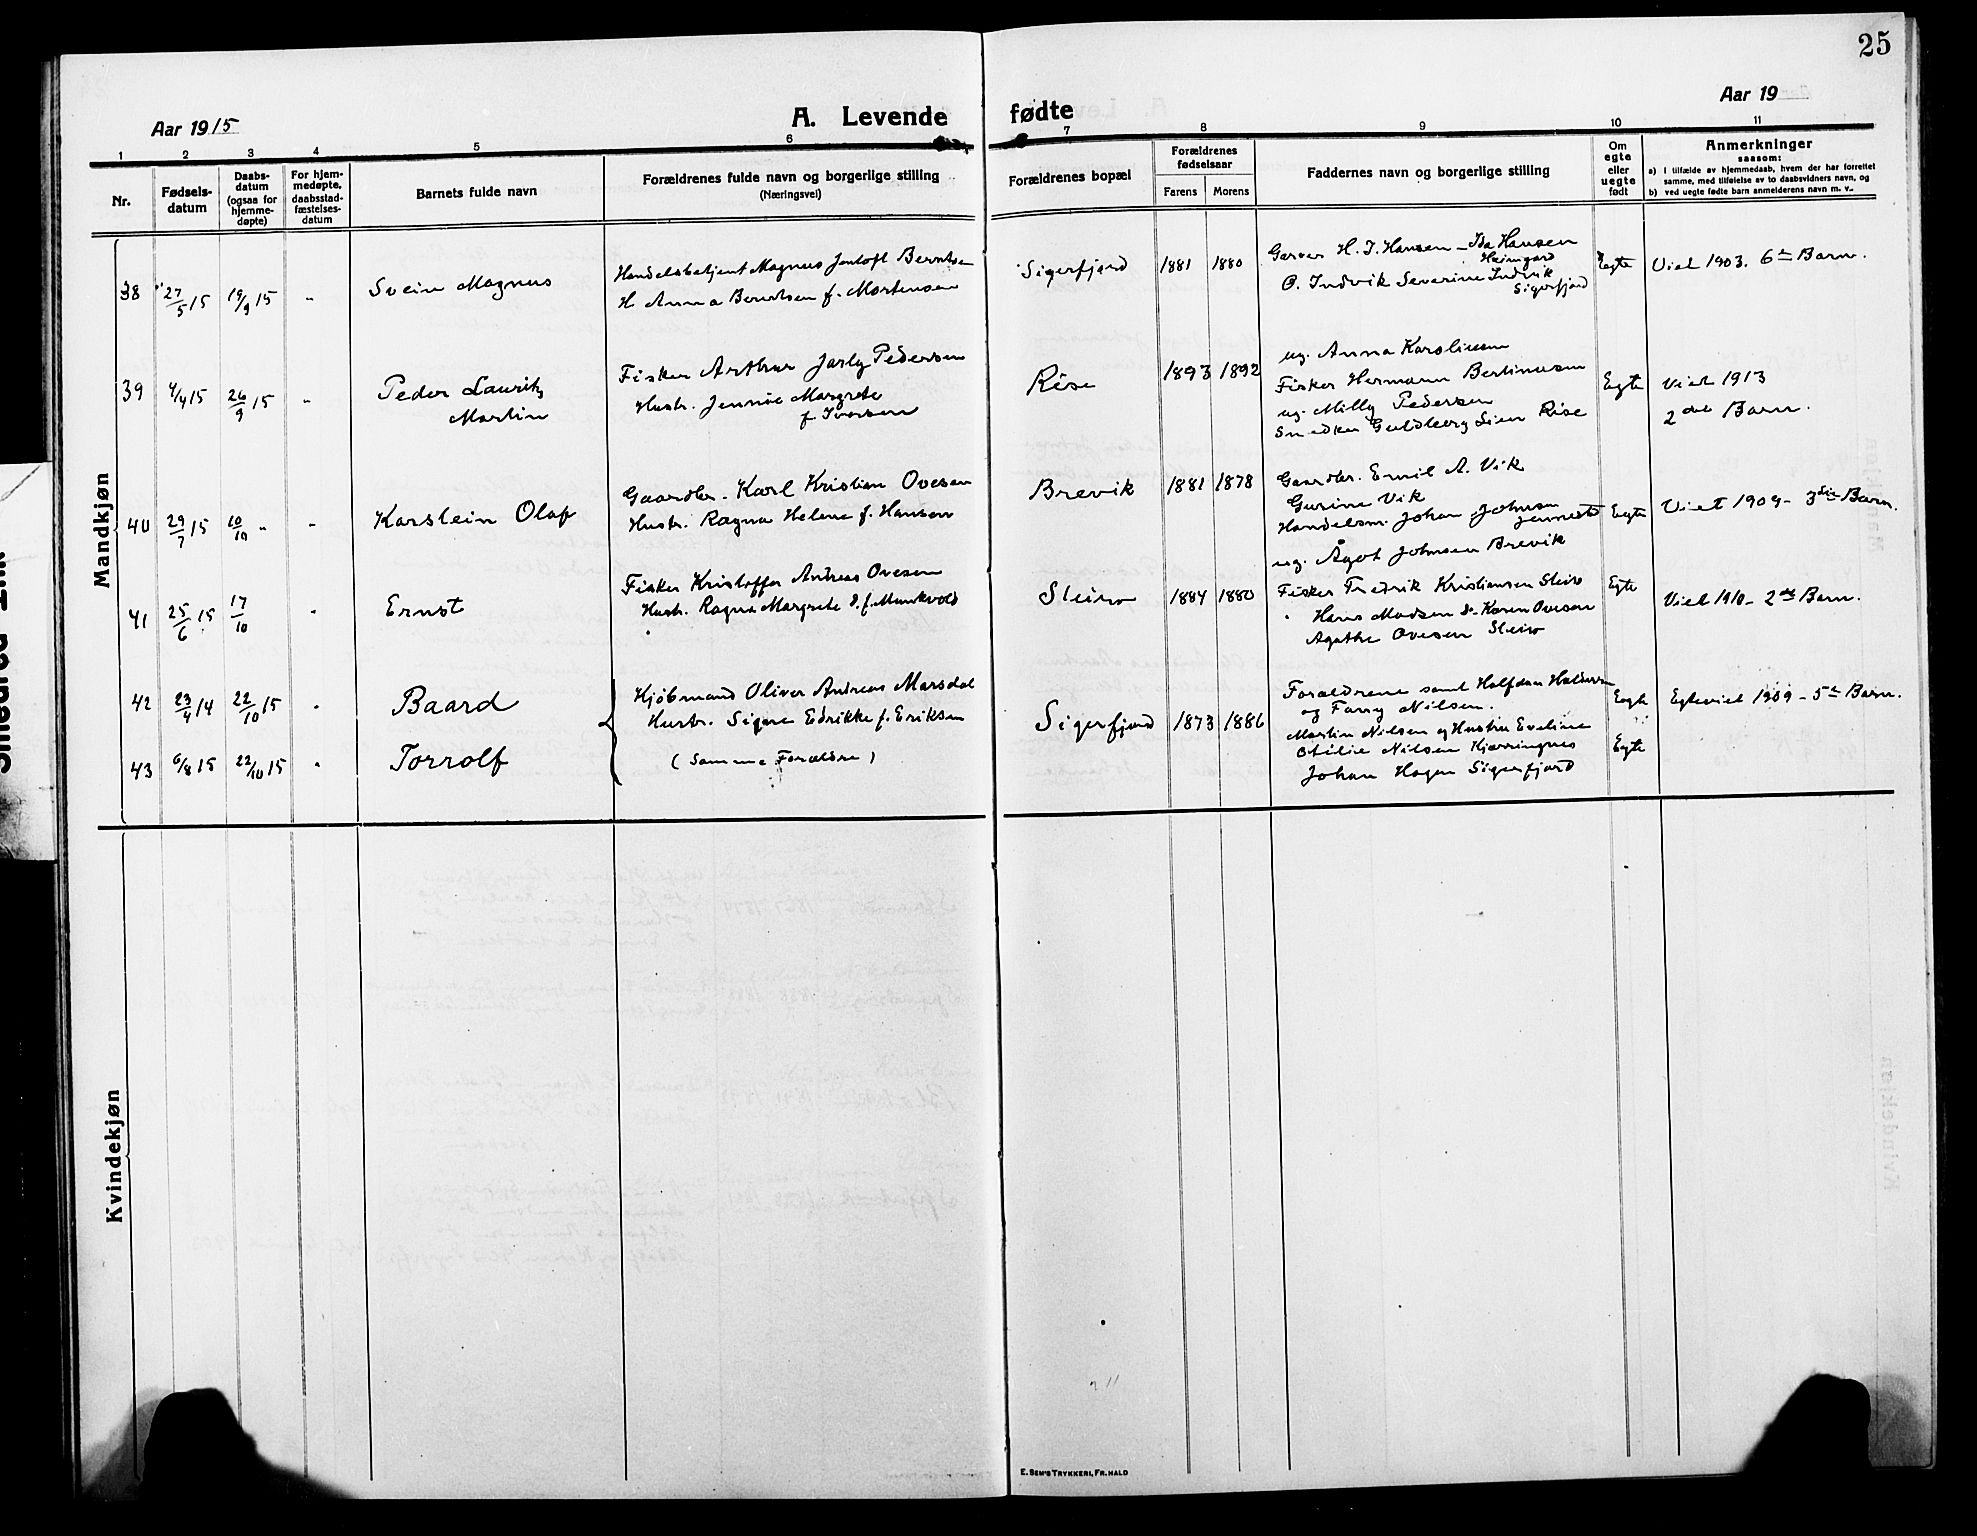 25
Aar 1915
A. Levende
fødte
Aar 19
1 2 3 4 5 6 7 8 9 10 11
Nr.
Fødsels-
datum
Daabs-
datum
(ogsaa for
hjemme-
døpte)
For hjem-
medøpte,
daabsstad-
fæstelses-
datum
Barnets fulde navn
Forældrenes fulde navn og borgerlige stilling
(Næringsvei)
Forældrenes bopæl
Forældrenes
fødselsaar
Farens Morens
Faddernes navn og borgerlige stilling
Om
egte
eller
uegte
født
Anmerkninger
saasom:
a) i tilfælde av hjemmedaab, hvem der har forrettet
samme, med tilføielse av to daabsvidners navn, og
b) ved uegte fødte barn anmelderens navn m. v.
Mandkjøn
38 27/5 15 19/9 15 " Svein Magnus
Handelsbetjent Magnus Jentoft Berntsen
H. Anna Berntsen f. Mortensen
Sigerfjord 1881 1880
Garver H. J. Hansen - Ida Hansen
Heimgard
O. Indvik Severine Indvik
Sigerfjord
Egte Viet 1903. 6te Barn.
39 4/4 15 26/9 15 " Peder Lauritz
Martin
Fisker Arthur Jarly Pedersen
Hustr. Jennie Margrete
f. Iversen
Rise 1893 1892
ug. Anna Karoliussen
Fisker Hermann Bertinussen
ug. Milly Pedersen
Snedker Guldberg Lien Rise
Egte Viet 1913
2det Barn.
40 29/7 15 10/10 " " Karstein Olaf
Gaardbr. Karl Kristian Ovesen
Hustr. Ragna Helene f. Hansen
Brevik 1881 1878
Gaardbr. Emil A. Vik
Gurine Vik
Handelsm. Johan Johnsen
Jennestad
ug. Ågot Johnsen Brevik
Egte Viet 1909 - 3die Barn.
41 25/6 15 17/10 " Ernst
Fisker Kristoffer Andreas Ovesen
Hustr. Ragna Margrete O. f. Munkvold
Steiro 1884 1880
Fisker Fredrik Kristiansen Steiro
" Hans Madsen do - Karen Ovesen
Agathe Ovesen Steiro
Egte Viet 1910 - 2det Barn.
42 23/4 14 22/10 15 " Baard
Kjøbmand Oliver Andreas Marsdal
Hustr. Signe Edrikke f. Eriksen
Sigerfjord 1873 1886
Forældrene samt Halfdan
og Fanny Nilsen.
Egte Egteviet 1909 - 5te Barn.
43 6/8 15 22/10 15 " Torrolf
(Samme Forældre)
Martin Nilsen og Hustru Eveline
Otilie Nilsen Kjørringnes
Johan Hagen Sigerfjord
Egte
Kvindekjøn
E. SEM'S TRYKKERI, FR.HALD